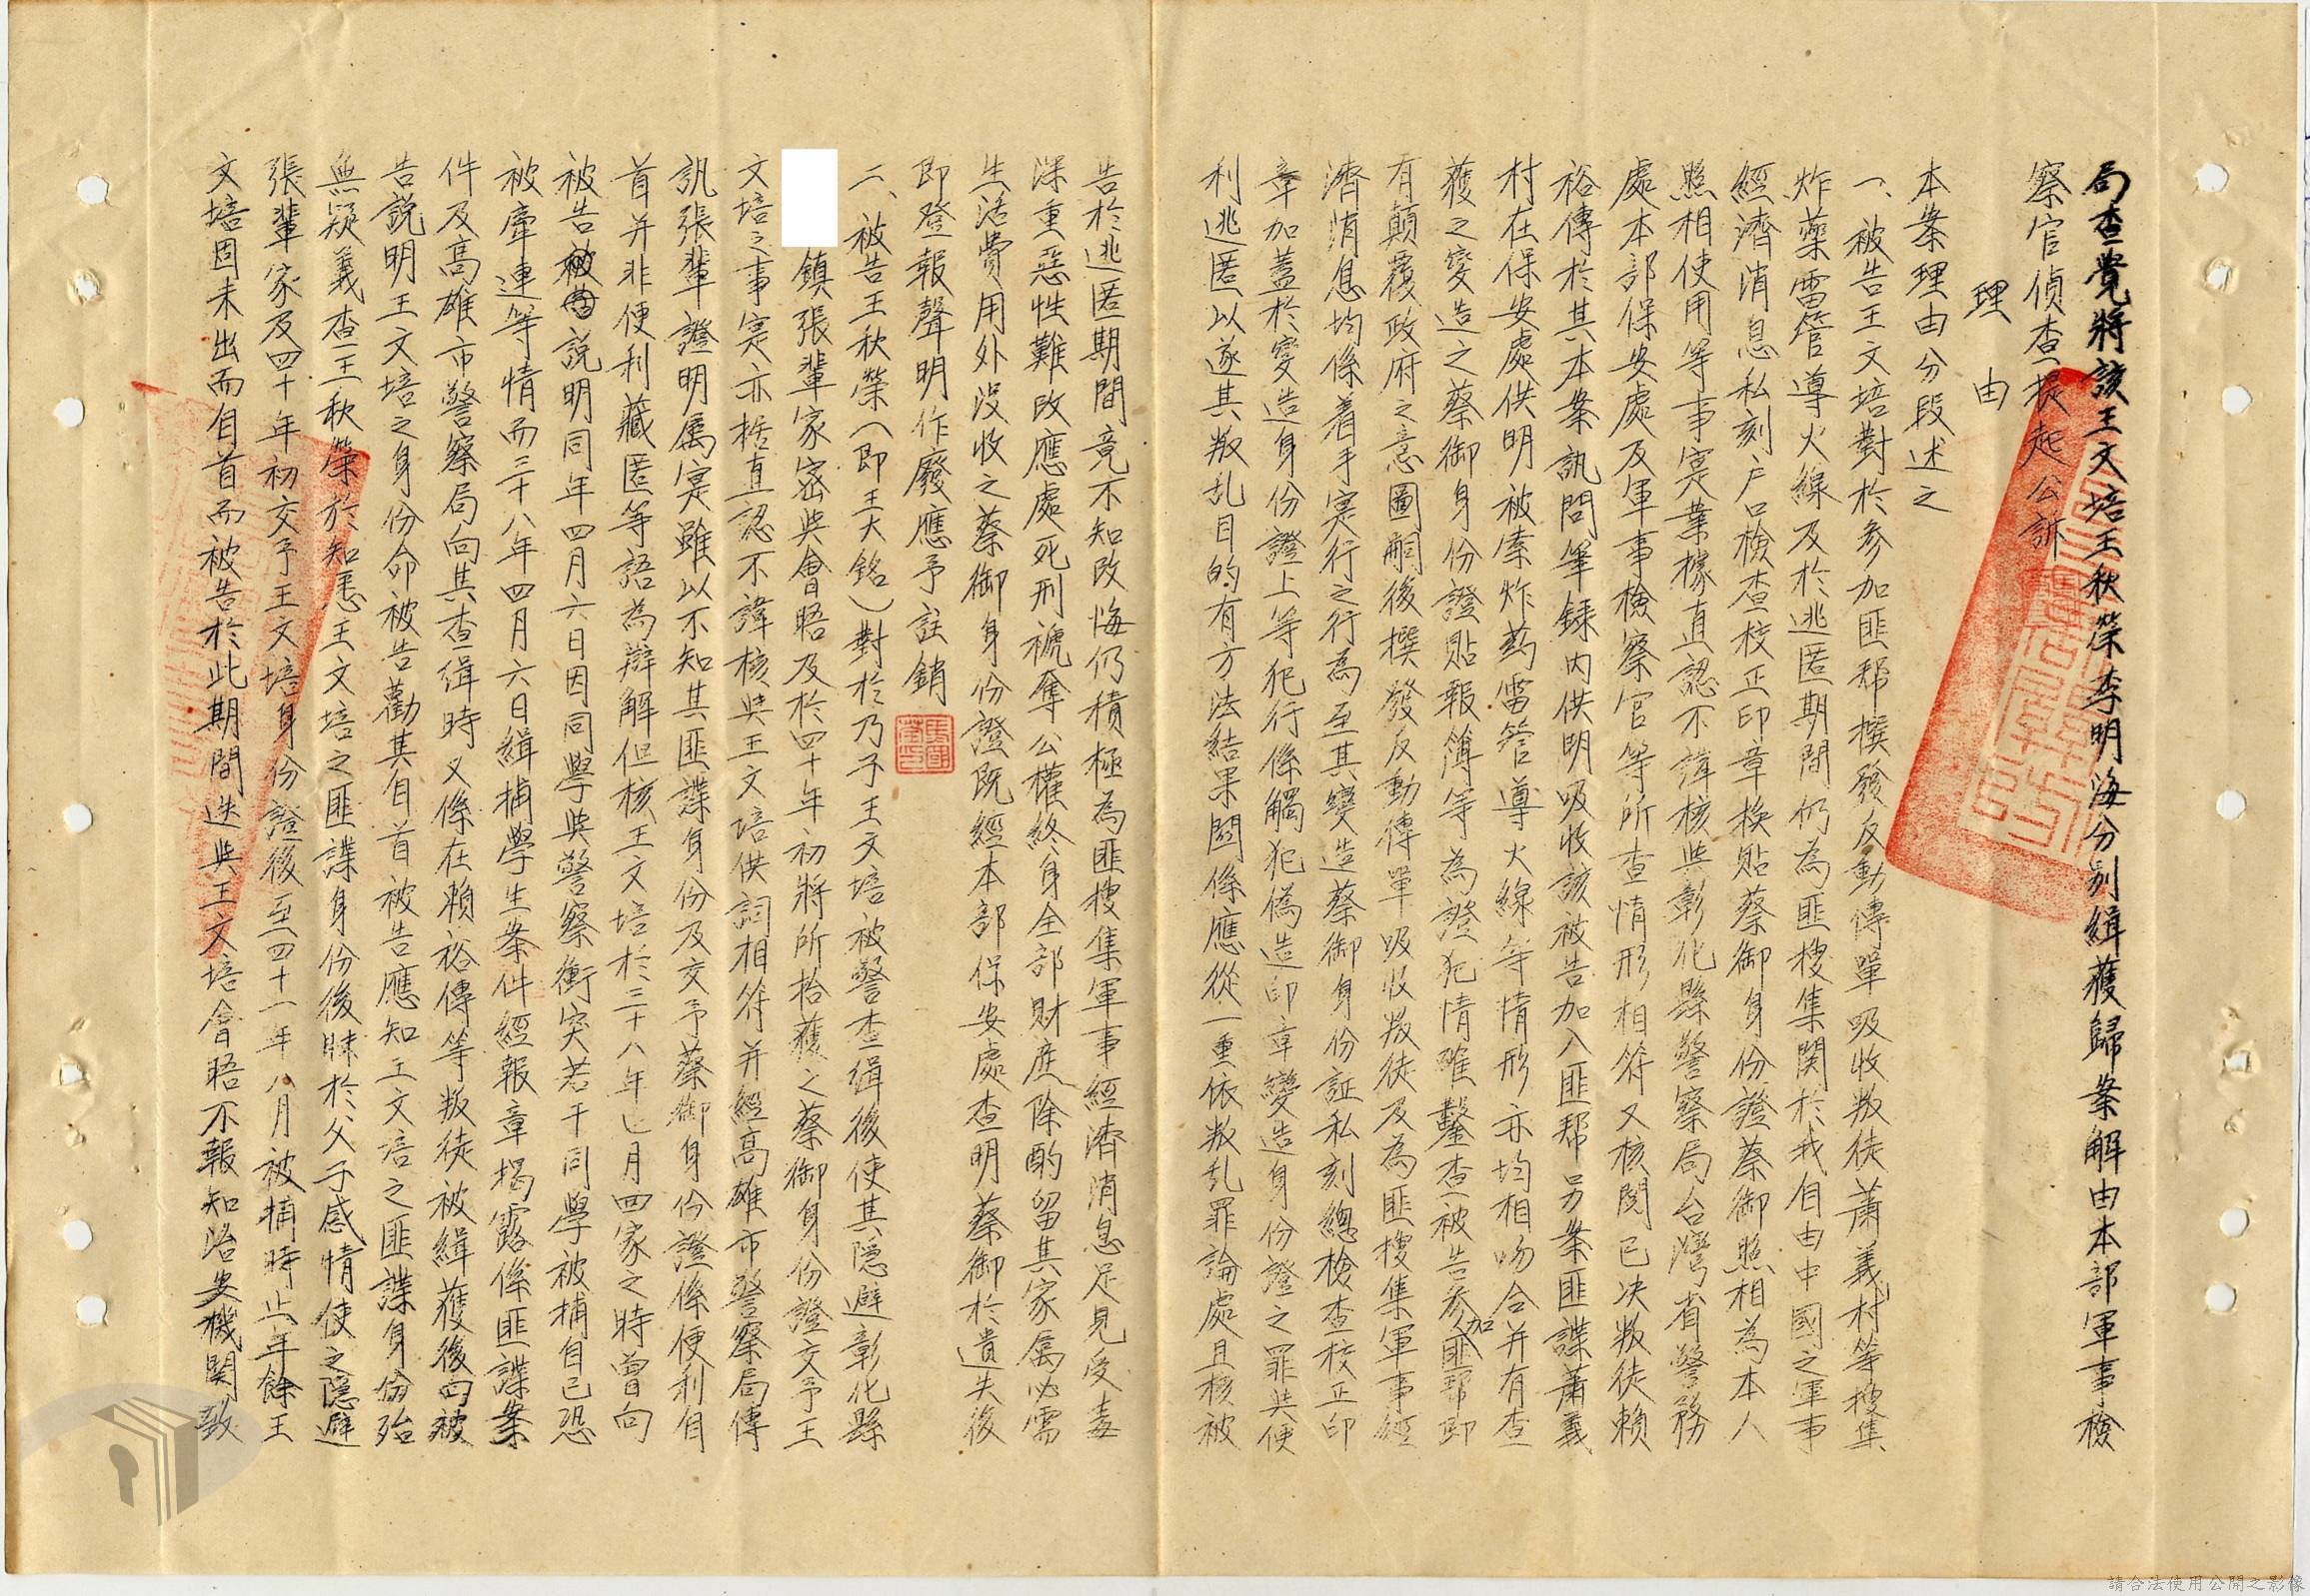 局查覺將該王文培王秋榮李明海分別緝獲歸案解由本部軍事檢
察官偵查提起公訴
理由
本案理由分段述之
一、被告王文培對於參加匪幫撰發反動傳單吸收叛徒蕭義村等搜集
炸藥雷管導火線及於逃匿期間仍為匪搜集関於我自由中國之軍事
經濟消息私刻戶口檢查校正印章換貼蔡御身份證蔡御照相為本人
照相使用等事寔業據直認不諱核與彰化縣警察局台灣省警務
處本部保安處及軍事檢察官等所查情形相符又核閱已決叛徒賴
裕傳於其本案訊問筆錄內供明吸收該被告加入匪幫另案匪諜蕭義
村在保安處供明被索炸葯雷管導火線等情形亦均相吻合并有查
獲之變造之蔡御身份證貼報簿等為證犯情確鑿查被告參加匪幫即
有顛覆政府之意圖嗣後撰發反動傳單吸收叛徒及為匪搜集軍事經
濟消息均係着手寔行之行為至其變造蔡御身份証私刻總檢查校正印
章加蓋於變造身份證上等犯行係觸犯偽造印章變造身份證之罪其便
利逃匿以遂其叛乱目的有方法結果関係應從一重依叛乱罪論處且核被
告於逃匿期間竟不知改悔仍積極為匪搜集軍事經濟消息足見受毒
深重惡性難改應處死刑褫奪公權終身全部財產除酌留其家屬必需
生活費用外沒收之蔡御身份證既經本部保安處查明蔡御於遺失後
即登報聲明作廢應予註銷
二、被告王秋榮(即王大銘)對於乃子王文培被警查緝後使其隱避彰化縣
鎮張輩家密與會晤及於四十年初將所拾獲之蔡御身份證交予王
文培之事寔亦據直認不諱核與王文培供詞相符并經高雄市警察局傳
訊張輩證明屬寔雖以不知其匪諜身份及交予蔡御身份證係便利自
首并非便利藏匿等語為辯解但核王文培於三十八年七月回家之時曾向
被告說明同年四月六日因同學與警察衝突若干同學被捕自己恐
被牽連等情而三十八年四月六日緝捕學生案件經報章揭露係匪諜案
件及高雄市警察局向其查緝時又係在賴裕傳等叛徒被緝獲後向被
告說明王文培之身份命被告勸其自首被告應知王文培之匪諜身份殆
無疑義查王秋榮於知悉王文培之匪諜身份後昧於父子感情使之隱避
張輩家及四十年初交予王文培身份證後至四十一年八月被捕時止年餘王
文培固未出而自首而被告於此期間迭與王文培會晤不報知治安機関致
請合法使用公開之影像